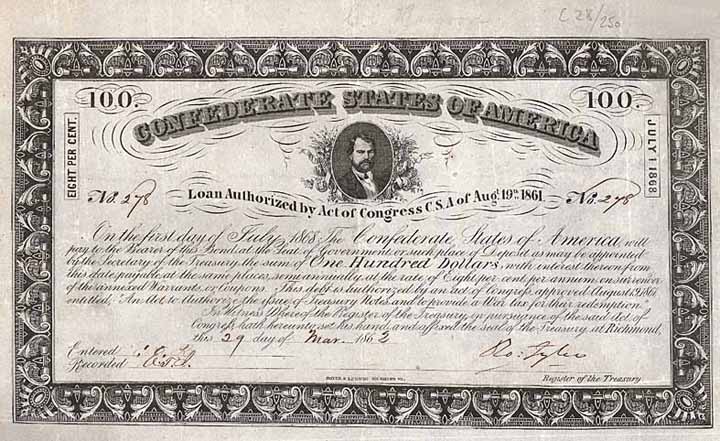 C 28/250
100. 100.
CONFEDERATE STATES OF AMERICA
EIGHT PER CENT.
JULY 1 1868
No. 278 No. 278
Loan Authorized by Act of Congress C.S.A of Augt. 19th. 1861
On the first day of July, 1868, The Confederate States of America will
pay to the Bearer of this Bond at the Seat of Government or such place of Deposit as may be appointed
by the Secretary of the Treasury, the sum of One Hundred Dollars, with interest thereon from
this date payable at the same places, semi annually, at the rate of Eight per cent per annum on surrender
of the annexed Warrants, or Coupons. This debt is authorized by an Act of Congress approved August 19, 1861
entitled, "An Act to Authorize the issue of Treasury Notes and to provide a War tax for their redemption."
In Witness Whereof the Register of the Treasury, in pursuance of the said Act of
Congress, hath hereunto set his hand, and affixed the seal of the Treasury, at Richmond,
this 29 day of Mar. 1862
Entered
Recorded
Ro: Tyler
Register of the Treasury